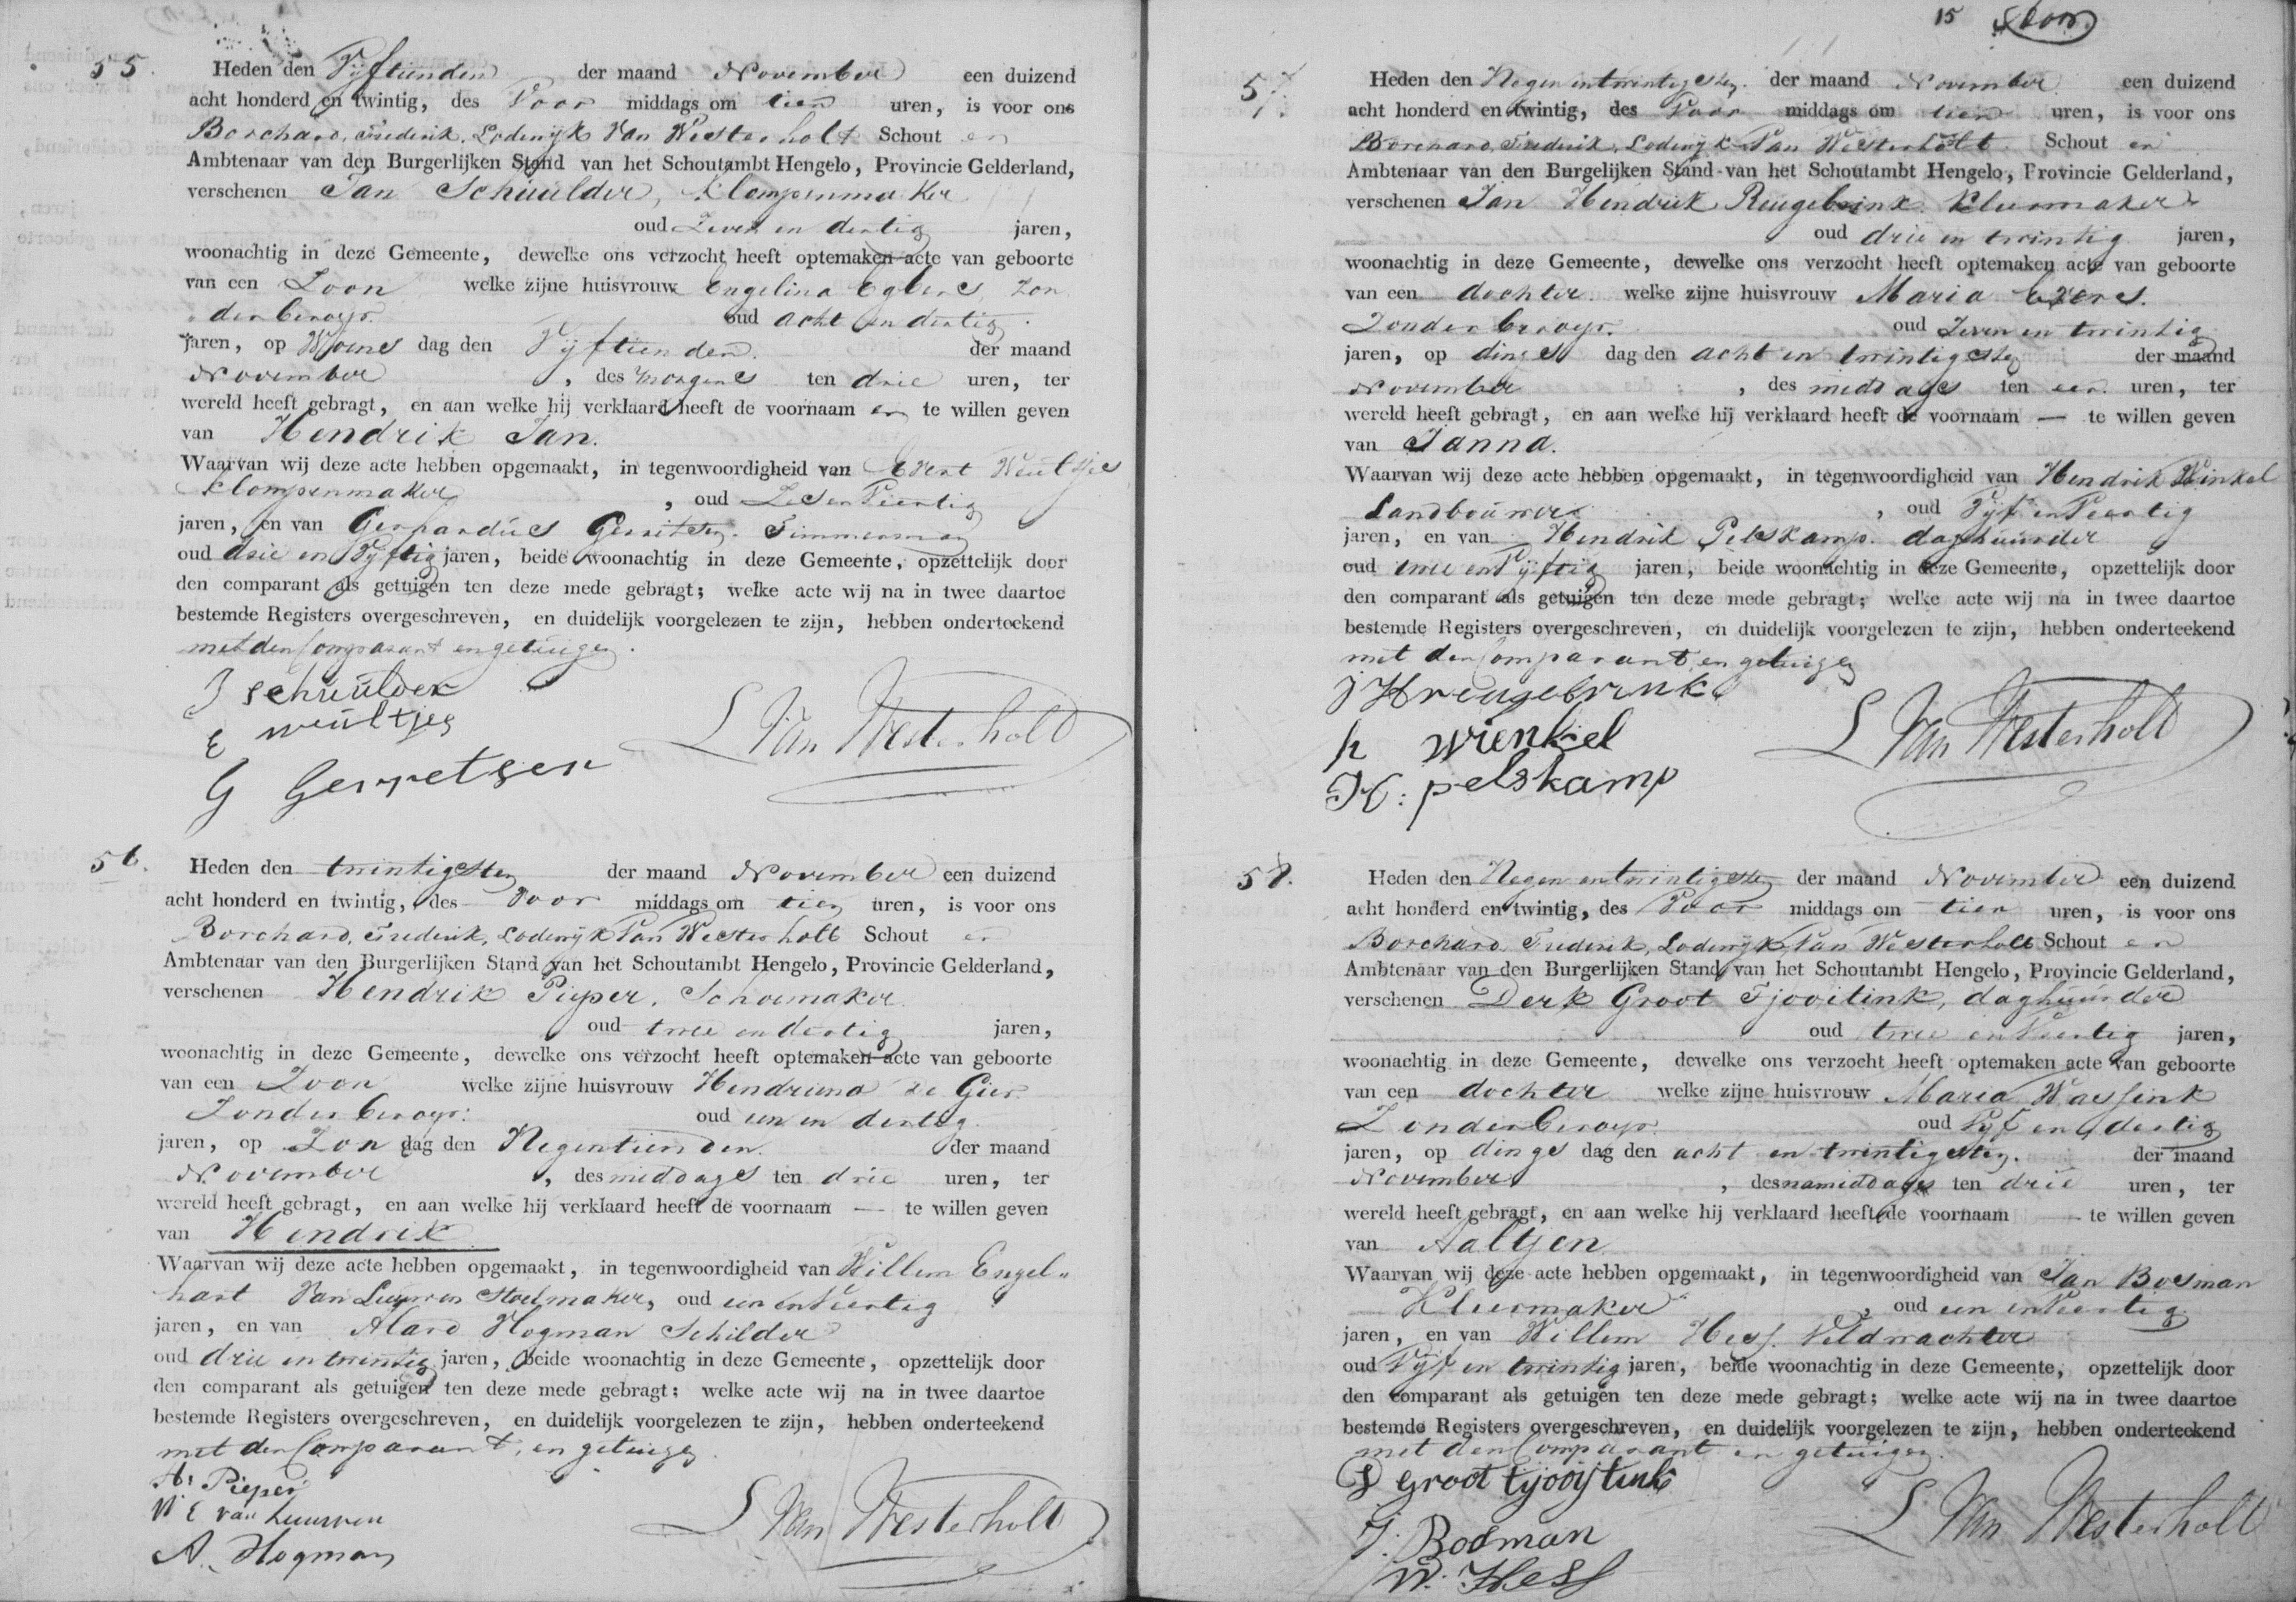 55. Heden den Vyftienden der maand November een duizend
acht honderd en twintig, des Voor middags om tien uren, is voor ons
Borchard, Frederik, Lodewyk Van Westerholt Schout en
Ambtenaar van den Burgerlijken Stand van het Schoutambt Hengelo, Provincie Gelderland,
verschenen Jan Schuulder, Klompenmaker
oud Zeven en dertig jaren,
woonachtig in deze Gemeente, dewelke ons verzocht heeft optemaken acte van geboorte
van een Zoon welke zijne huisvrouw Engelina Egbers, Zon
der beroep. oud acht en dertig.
jaren, op Woens dag den Vyftienden. der maand
November, des morgens ten drie uren, ter
wereld heeft gebragt, en aan welke hij verklaard heeft de voornaam en te willen geven
van Hendrik Jan.
Waarvan wij deze acte hebben opgemaakt, in tegenwoordigheid van Evert Weultjes
Klompenmaker, oud Zes en Veertig
jaren, en van Gerhardus Gerritsen. Timmerman
oud drie en Vyftig jaren, beide woonachtig in deze Gemeente, opzettelijk door
den comparant als getuigen ten deze mede gebragt; welke acte wij na in twee daartoe
bestemde Registers overgeschreven, en duidelijk voorgelezen te zijn, hebben onderteekend
met den Comparant en getuigen.
J schuulder
E weultjes
G Gerretsen
L Van Westerholt
56. Heden den twintigsten der maand November een duizend
acht honderd en twintig, des Voor middags om tien uren, is voor ons
Borchard, Frederik, Lodewyk Van Westerholt Schout en
Ambtenaar van den Burgerlijken Stand van het Schoutambt Hengelo, Provincie Gelderland,
verschenen Hendrik Pieper, Schoemaker
oud twee en dertig jaren,
woonachtig in deze Gemeente, dewelke ons verzocht heeft optemaken acte van geboorte
van een Zoon welke zijne huisvrouw Hendriena de Gier
Zonder beroep: oud een en dertig.
jaren, op Zon dag den Negentienden. der maand
November, des middags ten drie uren, ter
wereld heeft gebragt, en aan welke hij verklaard heeft de voornaam — te willen geven
van Hendrik
Waarvan wij deze acte hebben opgemaakt, in tegenwoordigheid van Willem Engel„
hart Van Leuwen Stoelmaker, oud een en Veertig
jaren, en van Alard Hogman Schilder
oud drie en twintig jaren, beide woonachtig in deze Gemeente, opzettelijk door
den comparant als getuigen ten deze mede gebragt; welke acte wij na in twee daartoe
bestemde Registers overgeschreven, en duidelijk voorgelezen te zijn, hebben onderteekend
met den Comparant, en getuigen.
H: Pieper
W E van Leuwen
A. Hogman
L Van Westerholt
15
57. Heden den Negen en twintigsten. der maand November. een duizend
acht honderd en twintig, des Voor middags om tien uren, is voor ons
Borchard, Frederik, Lodewyk Van Westerholt. Schout en
Ambtenaar van den Burgelijken Stand van het Schoutambt Hengelo, Provincie Gelderland,
verschenen Jan Hendrik Reugebrink. Kleermaker
oud drie en twintig jaren,
woonachtig in deze Gemeente, dewelke ons verzocht heeft optemaken acte van geboorte
van een dochter welke zijne huisvrouw Maria Evers.
Zonder beroep. oud Zeven en twintig
jaren, op dings dag den acht en twintigsten der maand
November, des middags ten een uren, ter
wereld heeft gebragt, en aan welke hij verklaard heeft de voornaam — te willen geven
van Janna.
Waarvan wij deze acte hebben opgemaakt, in tegenwoordigheid van Hendrik Winkel
Landbouwer, oud Vyf en Veertig
jaren, en van Hendrik Pelskamp. daghuurder
oud twee en Vyftig jaren, beide woonachtig in deze Gemeente, opzettelijk door
den comparant als getuigen ten deze mede gebragt; welke acte wij na in twee daartoe
bestemde Registers overgeschreven, en duidelijk voorgelezen te zijn, hebben onderteekend
met den Comparant, en getuigen
j H reugebrink
h wienkel
H: pelskamp
L Van Westerholt
58. Heden den Negen en twintigsten der maand November een duizend
acht honderd en twintig, des Voor middags om tien uren, is voor ons
Borchard Frederik, Lodewyk, Van Westerholt Schout en
Ambtenaar van den Burgerlijken Stand van het Schoutambt Hengelo, Provincie Gelderland,
verschenen Derk Groot Tjooitink, daghuurder
oud twee en Veertig jaren,
woonachtig in deze Gemeente, dewelke ons verzocht heeft optemaken acte van geboorte
van een dochter welke zijne huisvrouw Maria Wassink
Zonder beroep. oud Vyf en dertig
jaren, op dings dag den acht en twintigsten. der maand
November, des namiddags ten drie uren, ter
wereld heeft gebragt, en aan welke hij verklaard heeft de voornaam — te willen geven
van Aaltjen
Waarvan wij deze acte hebben opgemaakt, in tegenwoordigheid van Jan Bosman
Kleermaker, oud een en Veertig
jaren, en van Willem Hess. Veldwachter
oud Vyf en twintig jaren, beide woonachtig in deze Gemeente, opzettelijk door
den comparant als getuigen ten deze mede gebragt; welke acte wij na in twee daartoe
bestemde Registers overgeschreven, en duidelijk voorgelezen te zijn, hebben onderteekend
met den Comparant en getuigen.
D Groot tjooijtink
J. Bosman
W. Hess
L Van Westerholt